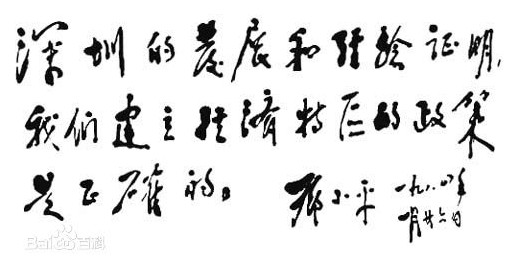 深圳的发展和经验证明，
我们建立经济特区的政策
是正确的。
邓小平 一九八四年
一月廿六日
Baidu百科